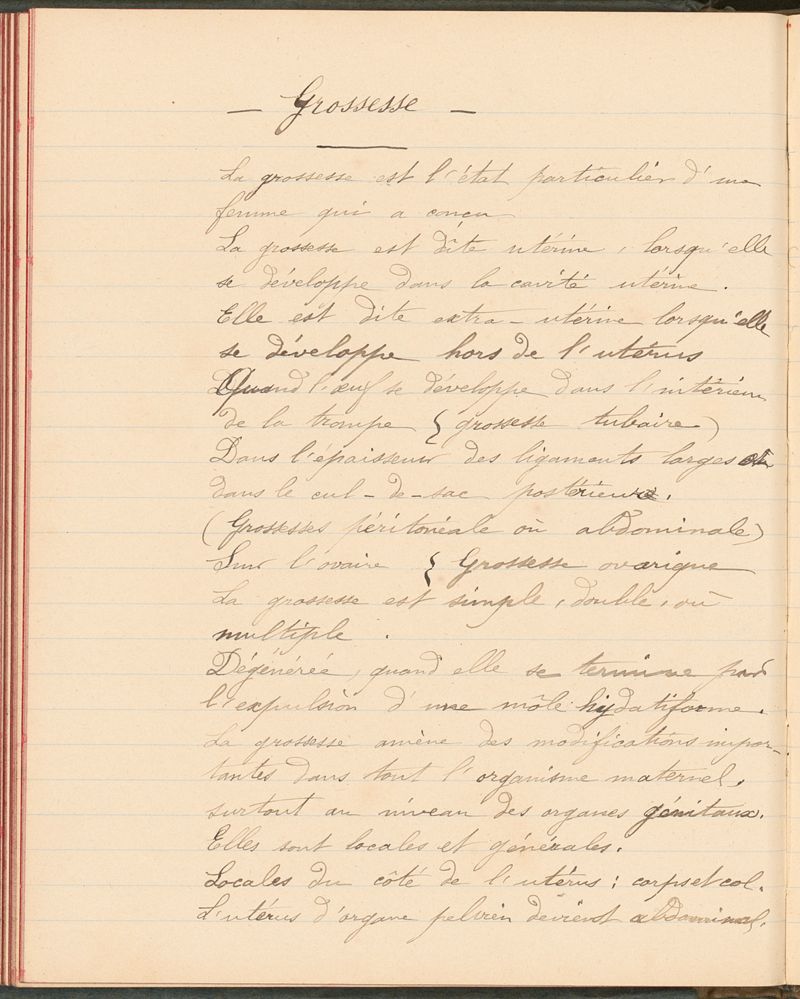 — Grossesse —
La grossesse est l'état particulier d'une
femme qui a conçu
La grossesse est dîte utérine, lorsqu'elle
se développe dans la cavité utérine.
Elle est dite extra-utérine lorsqu'elle
se développe hors de l'utérus
Quand l'œuf se développe dans l'intérieur
de la trompe { grossesse tubaire )
Dans l'épaisseur des ligaments larges et
dans le cul-de-sac postérieur.
(Grossesses péritonéale où abdominale)
Sur l'ovaire { Grossesse ovarique
La grossesse est simple, double, où
multiple.
Dégénérée, quand elle se termine par
l'expulsion d'une môle hydatiforme.
La grossesse amène des modifications impor-
tantes dans tout l'organisme maternel,
surtout au niveau des organes génitaux.
Elles sont locales et générales.
Locales du côté de l'utérus : corps et col.
L'utérus d'organe pelvien devient abdominal.